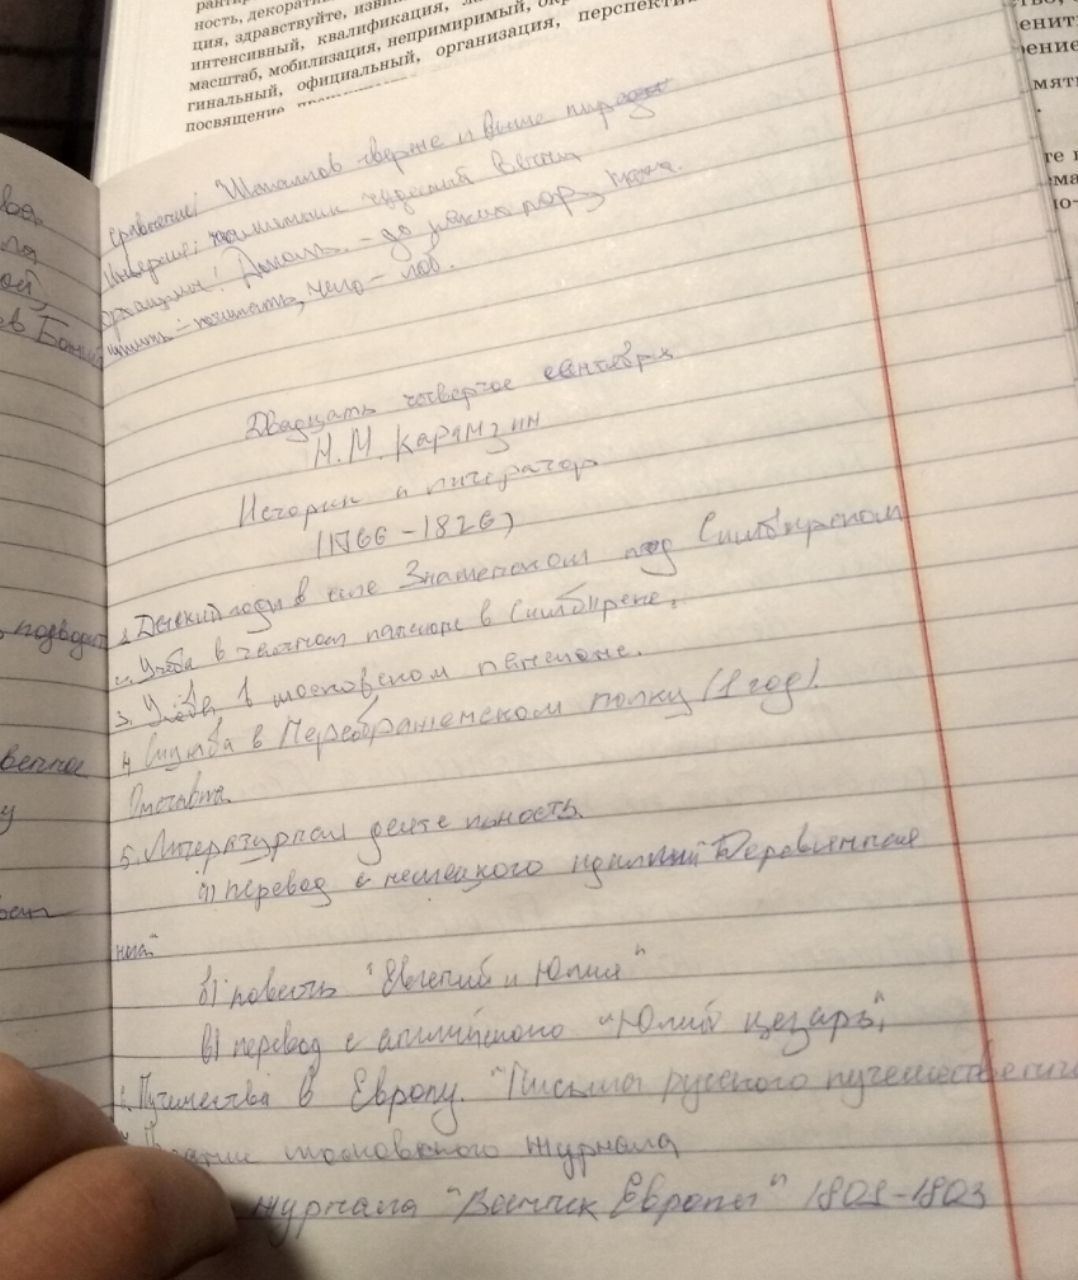 ность, декорати
ция, здравствуйте, изви
интенсивный, квалификация,
масштаб, мобилизация, непримиримый,
гинальный, официальный, организация, перспекти
посвящение
ениті
рение
мят
сравнение; тверже и выше
Инверсия; памятник чудесный вечный
архаизмы: - до
чтить - почитать, чело - лоб.
в Божий
Двадцать четвертое сентября
Н.М. Карамзин
Историк и литератор
(1766 - 1826)
1. Детский годы в селе Знаменском под Симбирском
2. Учёба в частном пансионе в Симбирске.
подводит
3. Учёба в московском пансионе.
4. Служба в Переображенском полку (1 год).
венное
у
Отставка
5. Литературная деятельность.
а) перевод с немецкого идиллий "Деревянная
нога"
б) повесть "Евгений и Юлия"
в) перевод с английского "Юлий цезарь"
Путешества в Европу. "Письма русского путешественни
московского журнала
журнала "Вестник Европы" 1801-1803